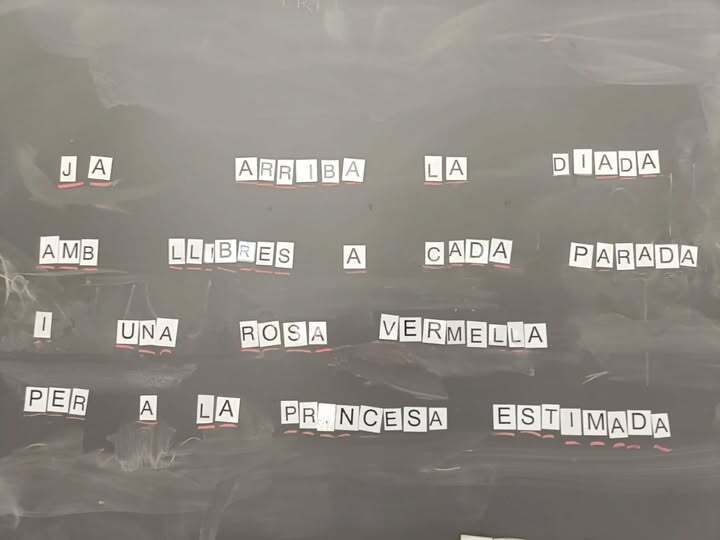 JA ARRIBA LA DIADA
AMB LLIBRES A CADA PARADA
I UNA ROSA VERMELLA
PER A LA PRINCESA ESTIMADA